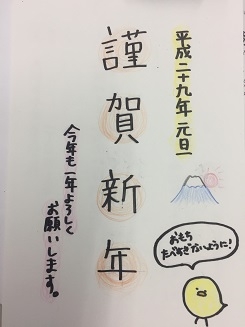 平成二十九年 元旦
謹賀新年
今年も一年よろしく
お願いします。
おもち
たべすぎないように!